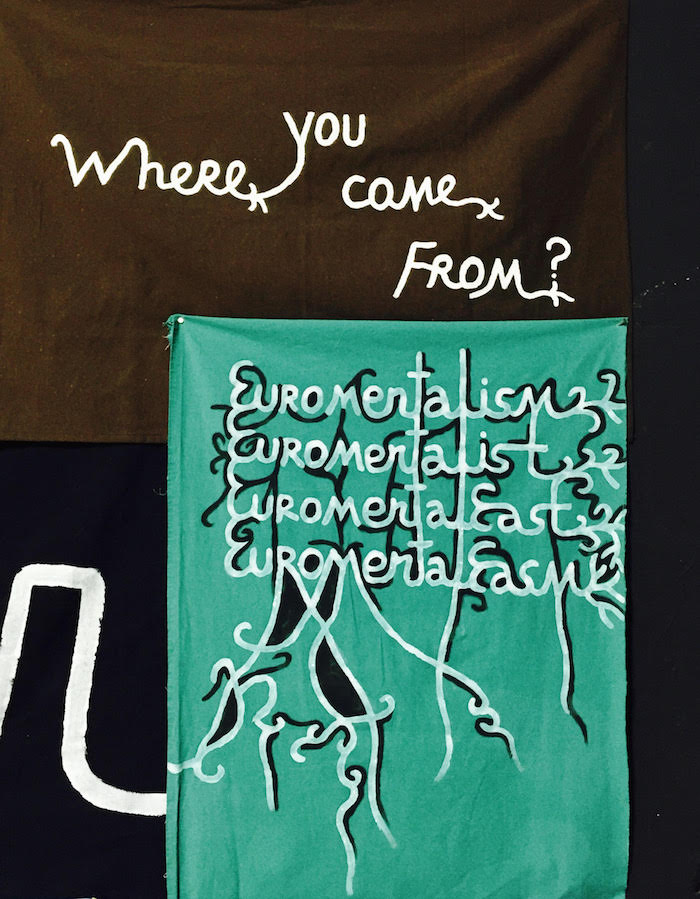 Where you
came
From?
Euromentalism
Euromentalist
EuromentalEast
EuromentalEasm